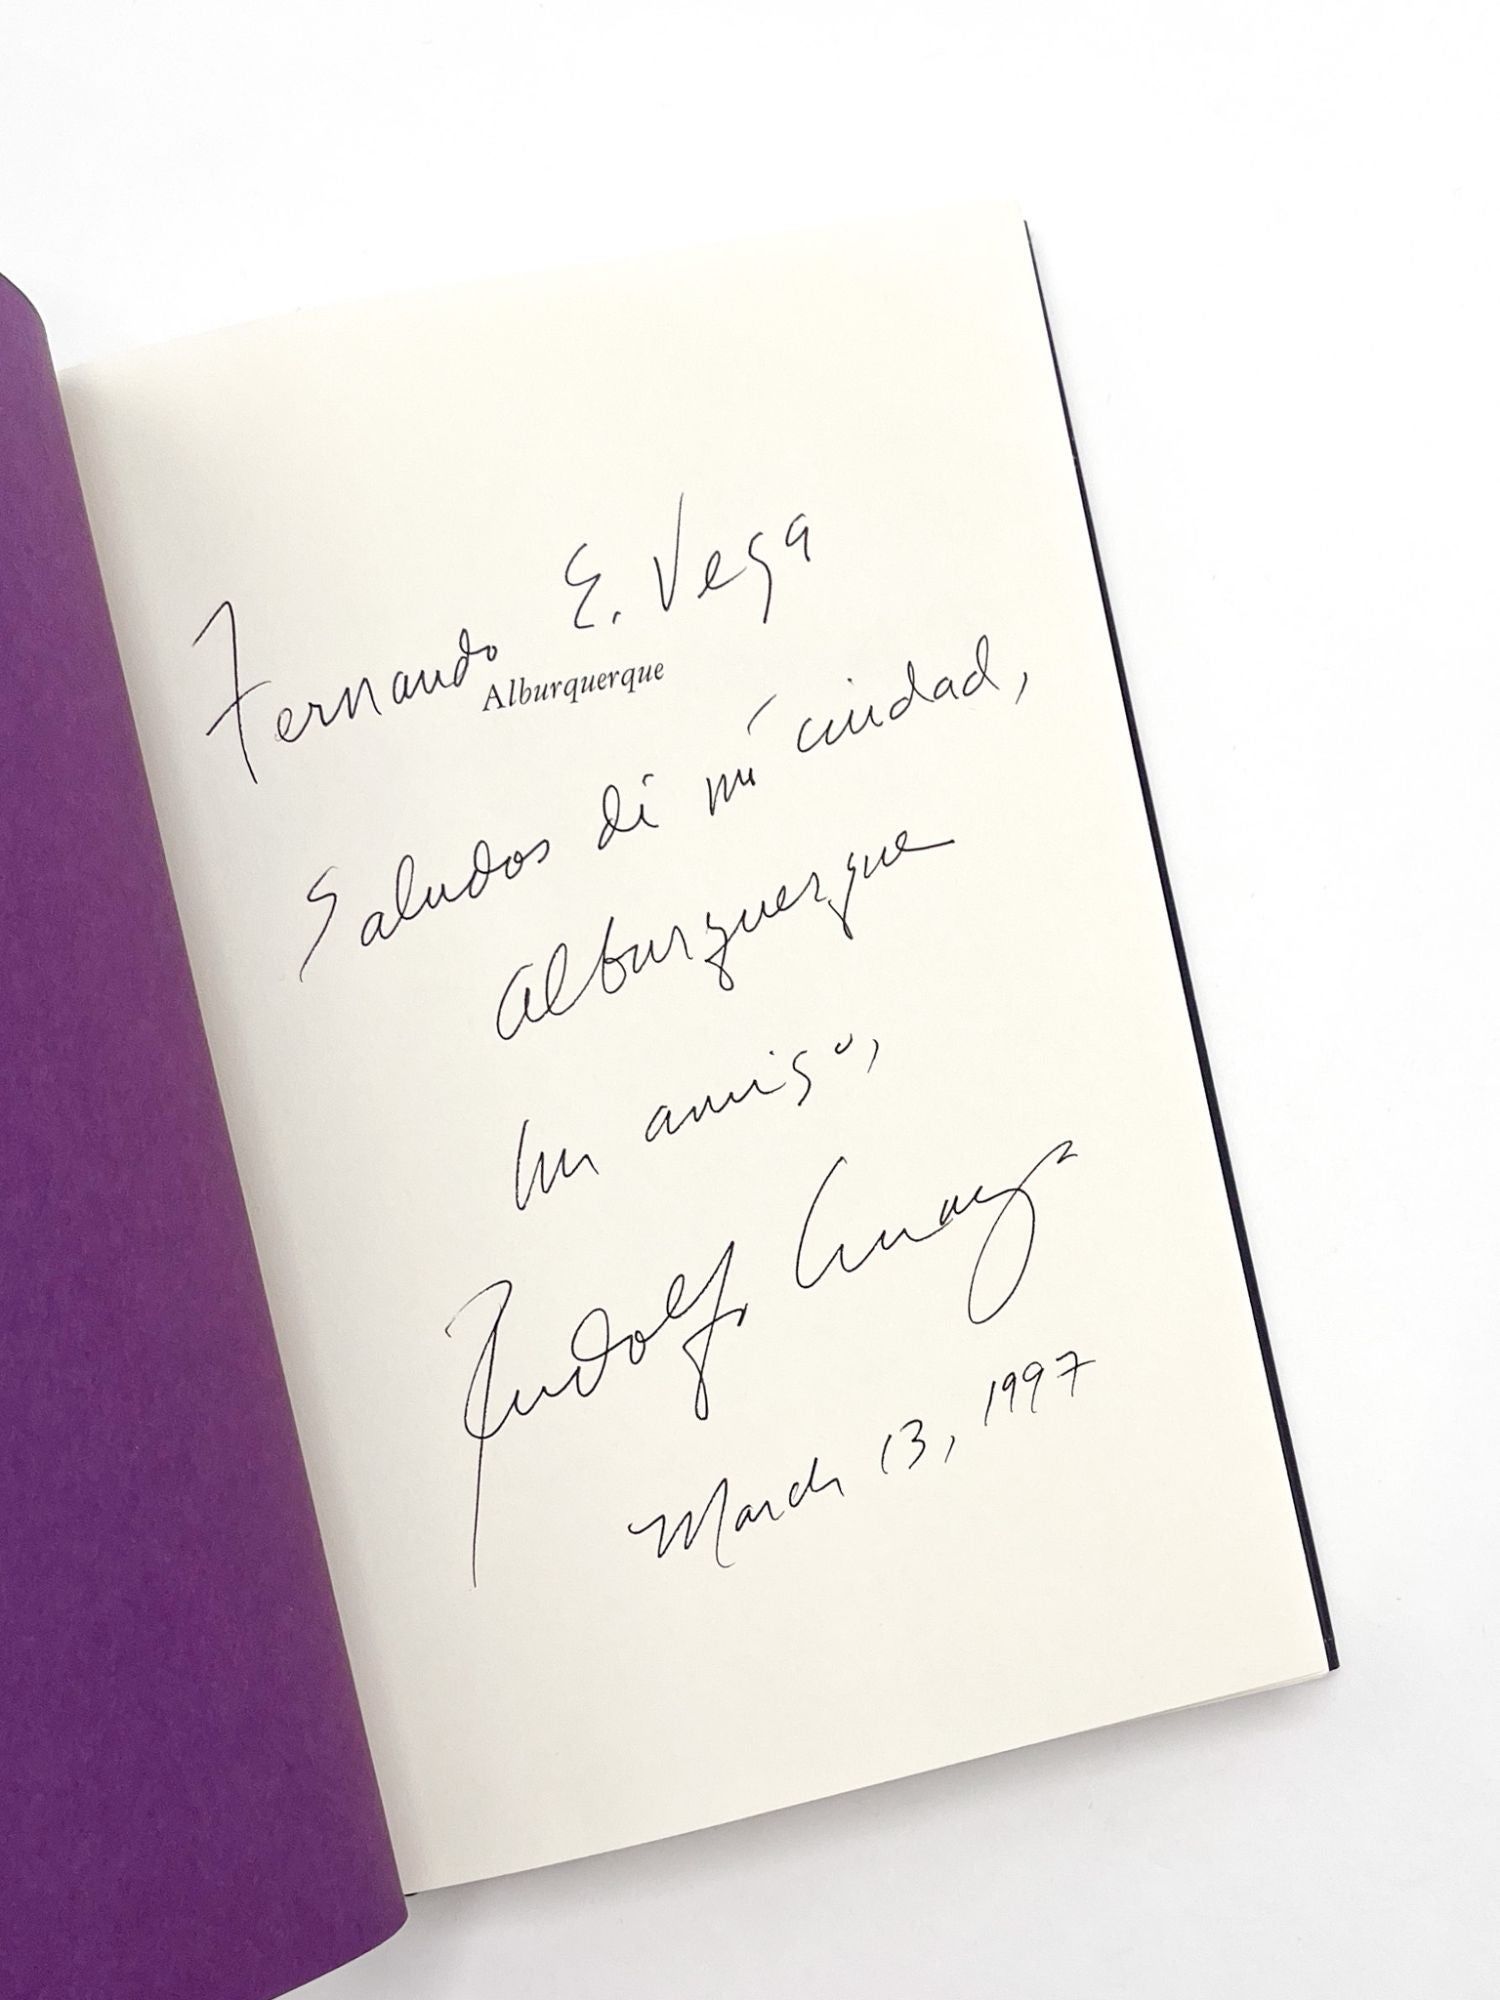 Fernando E. Vega
Alburquerque
Saludos di mí ciudad,
Alburquerque
Un amigo,
Rudolfo Anaya
March 13, 1997